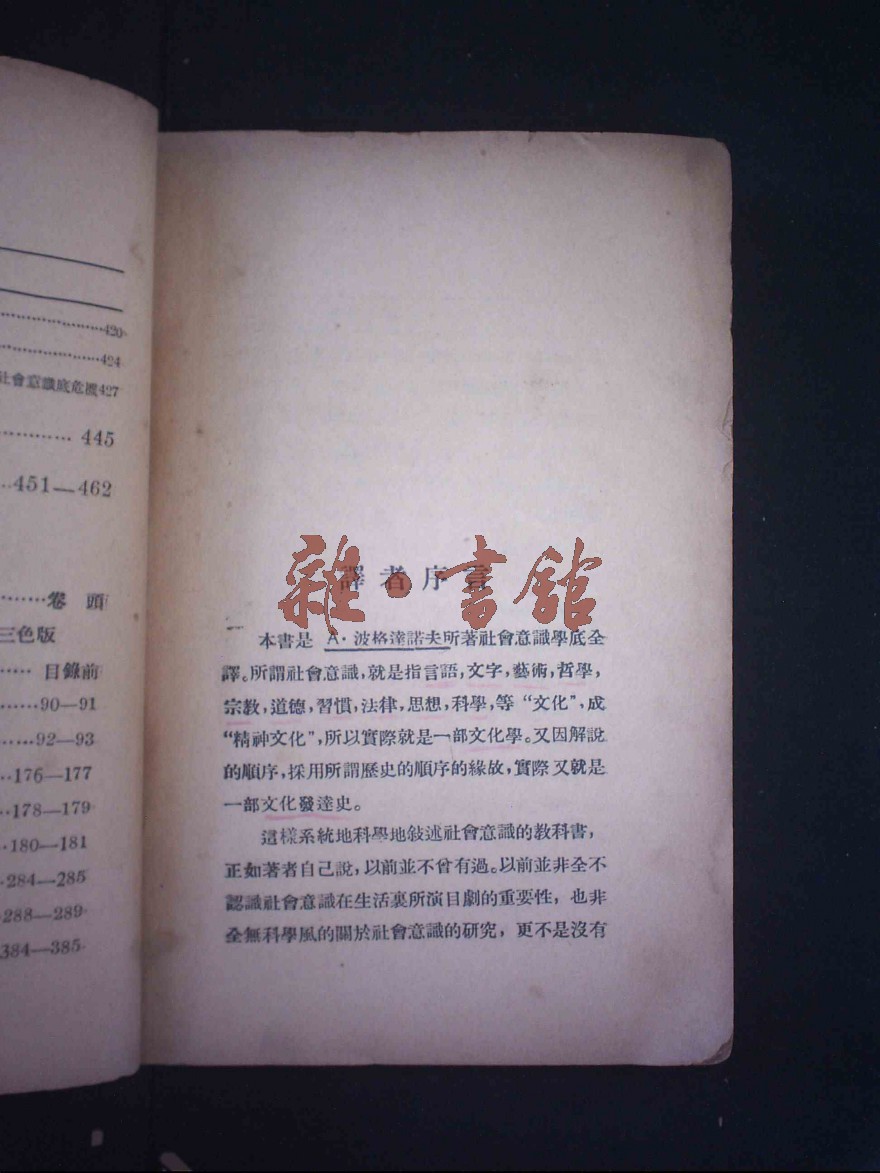 420
424
社會意識底危機427
445
451—462
卷 頭
三色版
目錄前
90—91
92—93
176—177
178—179
180—181
284—285
288—289
384—385
雜·書館
譯者序言
本書是 A·波格達諾夫所著社會意識學底全
譯。所謂社會意識,就是指言語,文字,藝術,哲學,
宗教,道德,習慣,法律,思想,科學,等“文化”,成
“精神文化”,所以實際就是一部文化學。又因解說
的順序,採用所謂歷史的順序的緣故,實際又就是
一部文化發達史。
這樣系統地科學地敍述社會意識的教科書,
正如著者自己說,以前並不曾有過。以前並非全不
認識社會意識在生活裏所演目劇的重要性,也非
全無科學風的關於社會意識的研究,更不是沒有